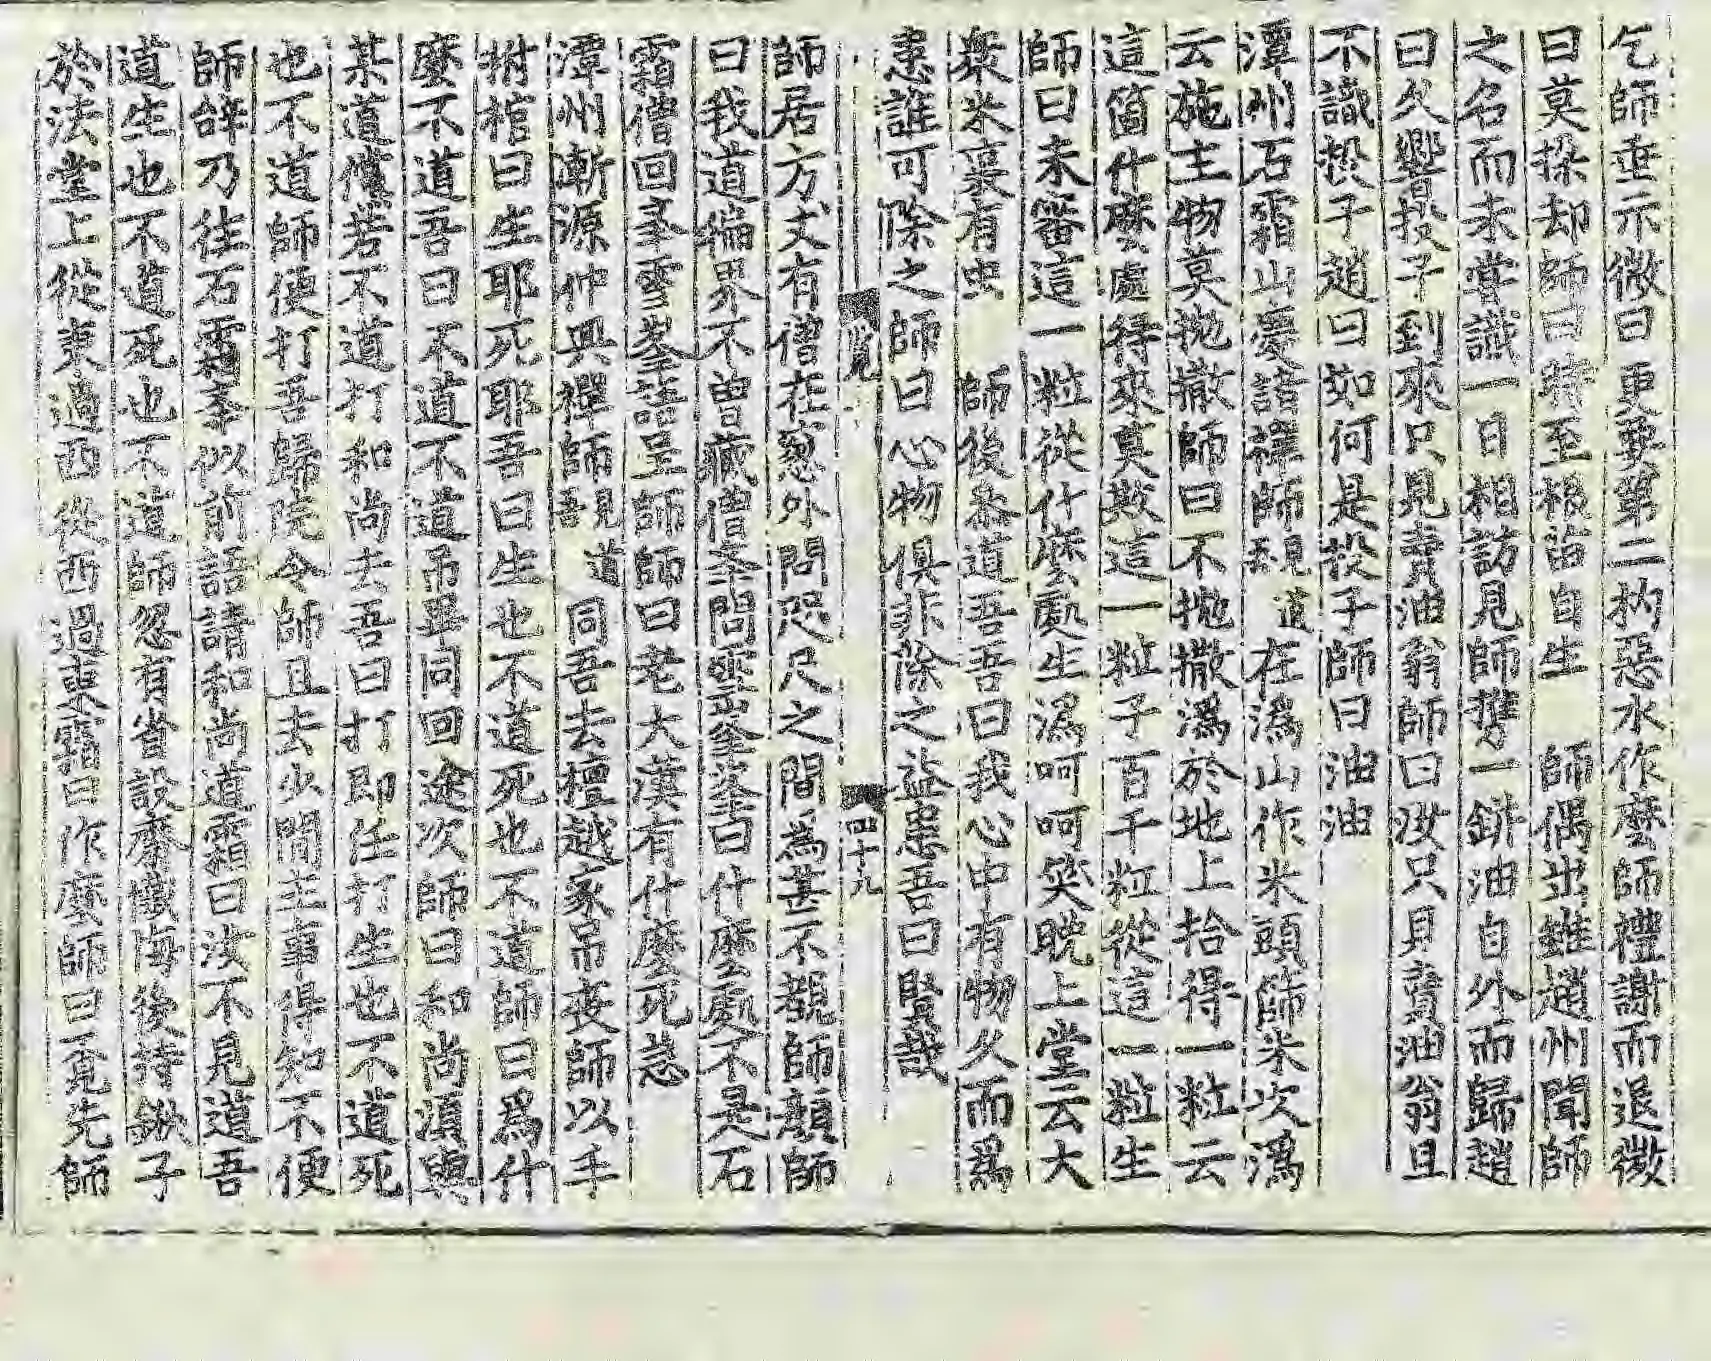 乞師垂示微曰更要第二杓惡水作麽師禮謝而退微
曰莫探却師曰時至根苗自生　師偶出雞趙州聞師
之名而未嘗識一日相訪見師携一缾油自外而歸趙
曰久響投子到來只見賣油翁師曰汝只見賣油翁且
不識投子趙曰如何是投子師曰油油
潭州石霜山慶諸禪師嗣道在潙山作米頭篩米次潙
云施主物莫抛撒師曰不抛撒潙於地上拾得一粒云
這箇什麽處得來莫欺這一粒子百千粒從這一粒生
師曰未審這一粒從什麽處生潙呵呵笑晩上堂云大
衆米裏有虫　師後叅道吾吾曰我心中有物久而爲
患誰可除之師曰心物俱非除之益患吾曰賢哉
四十九
師居方丈有僧在窓外問咫尺之間爲甚不覩師顔師
曰我道徧界不曾藏僧擧問雪峯峯曰什麽處不是石
霜僧回擧雪峯語呈師師曰老大漢有什麽死急
潭州漸源仲興禪師嗣道吾同吾去檀越家吊喪師以手
拊棺曰生耶死耶吾曰生也不道死也不道師曰爲什
麽不道吾曰不道不道吊畢同回途次師曰和尚須與
某道儻若不道打和尚去吾曰打即任打生也不道死
也不道師便打吾歸院令師且去少閒主事得知不便
師辭乃往石霜擧似前語請和尚道霜曰汝不見道吾
道生也不道死也不道師忽有省設齋懺悔後持鍬子
於法堂上從東過西從西過東霜曰作麽師曰覓先師